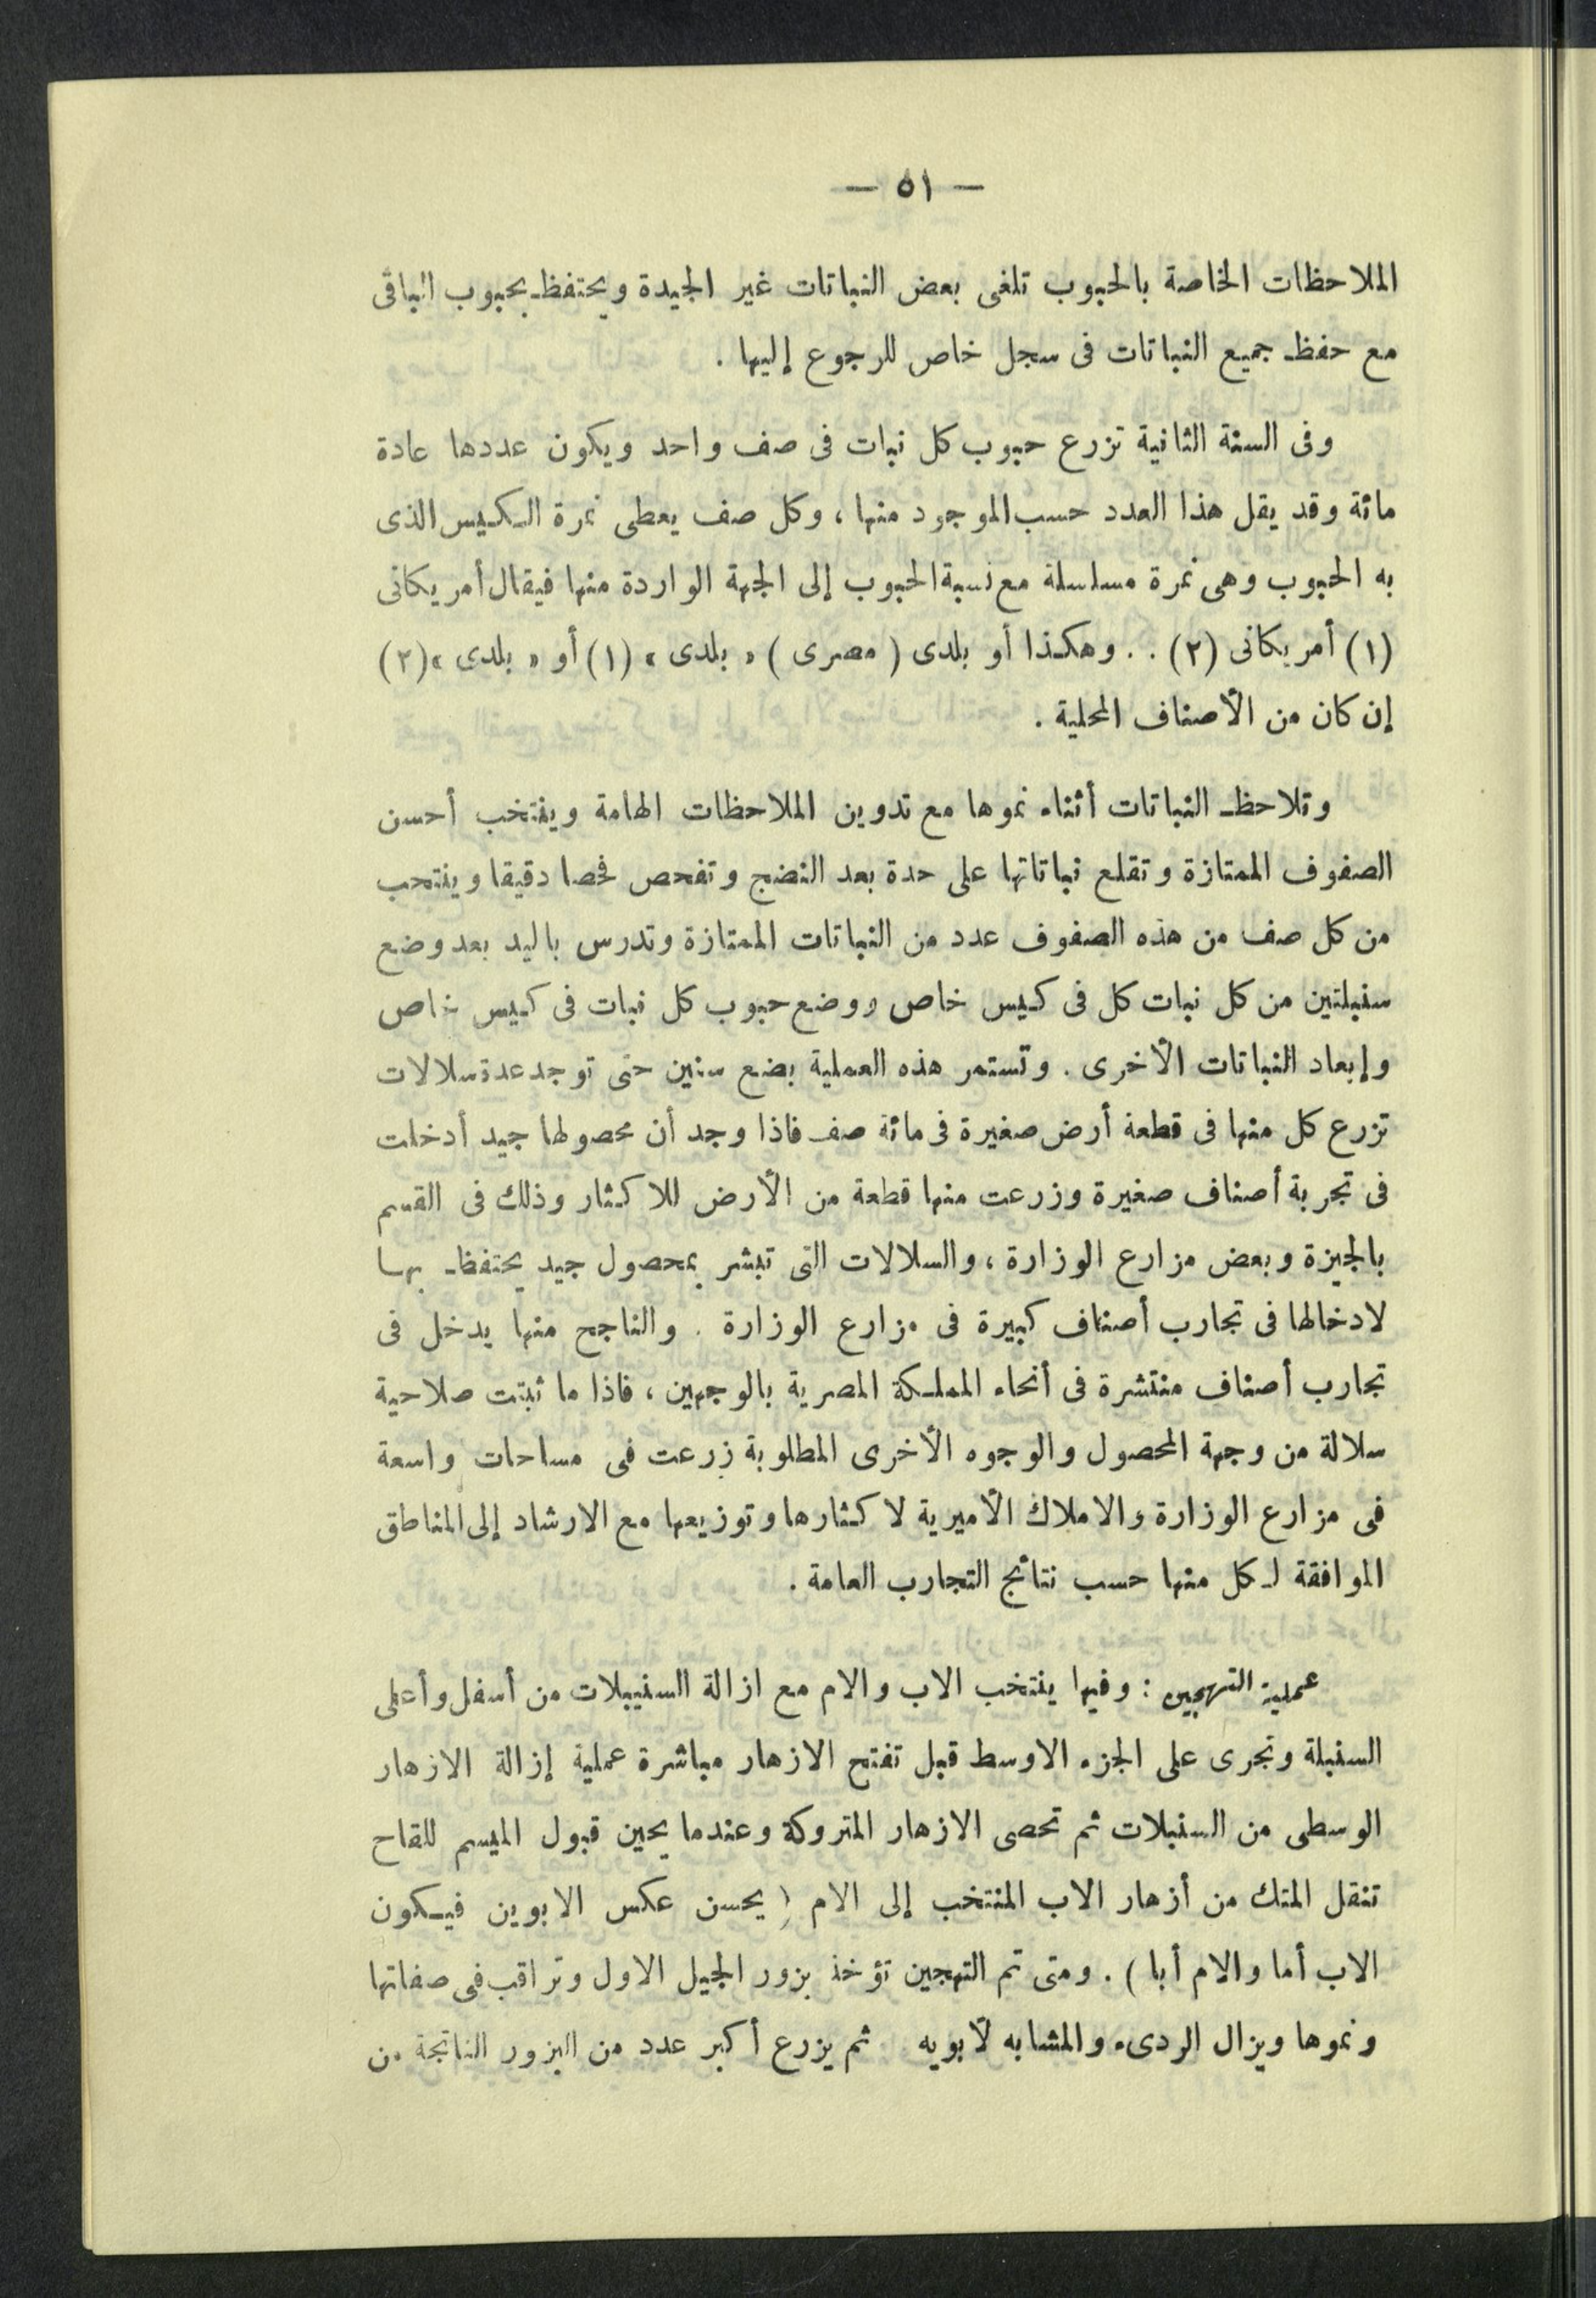 — ٥١ —
الملاحظات الخاصة بالحبوب تلغى بعض النباتات غير الجيدة ويحتفظ بحبوب الباقى
مع حفظ جميع النباتات فى سجل خاص للرجوع إليها .
وفى السنة الثانية تزرع حبوب كل نبات فى صف واحد ويكون عددها عادة
مائة وقد يقل هذا العدد حسب الموجود منها ، وكل صف يعطى نمرة الكيس الذى
به الحبوب وهى نمرة مسلسلة مع نسبة الحبوب إلى الجهة الواردة منها فيقال أمريكانى
(١) أمريكانى (٢) . . وهكذا أو بلدى ( مصرى ) « بلدى » (١) أو « بلدى » (٢)
إن كان من الأصناف المحلية .
وتلاحظ النباتات أثناء نموها مع تدوين الملاحظات الهامة وينتخب أحسن
الصفوف الممتازة وتقلع نباتاتها على حدة بعد النضج وتفحص فحصا دقيقا وينتخب
من كل صف من هذه الصفوف عدد من النباتات الممتازة وتدرس باليد بعد وضع
سنبلتين من كل نبات كل فى كيس خاص ووضع حبوب كل نبات فى كيس خاص
وإبعاد النباتات الأخرى . وتستمر هذه العملية بضع سنين حتى توجد عدة سلالات
تزرع كل منها فى قطعة أرض صغيرة فى مائة صف فاذا وجد أن محصولها جيد أدخلت
فى تجربة أصناف صغيرة وزرعت منها قطعة من الأرض للاكثار وذلك فى القسم
بالجيزة وبعض مزارع الوزارة ، والسلالات التى تبشر بمحصول جيد يحتفظ بها
لادخالها فى تجارب أصناف كبيرة فى مزارع الوزارة . والناجح منها يدخل فى
تجارب أصناف منتشرة فى أنحاء المملكة المصرية بالوجهين ، فاذا ما ثبتت صلاحية
سلالة من وجهة المحصول والوجوه الأخرى المطلوبة زرعت فى مساحات واسعة
فى مزارع الوزارة والاملاك الأميرية لاكثارها وتوزيعها مع الارشاد إلى المناطق
الموافقة لكل منها حسب نتائج التجارب العامة .
عملية التهجين : وفيها ينتخب الاب والام مع ازالة السنيبلات من أسفل وأعلى
السنبلة وتجرى على الجزء الاوسط قبل تفتح الازهار مباشرة عملية إزالة الازهار
الوسطى من السنبلات ثم تحصى الازهار المتروكة وعندما يحين قبول الميسم للقاح
تنقل المتك من أزهار الاب المنتخب إلى الام ( يحسن عكس الابوين فيكون
الاب أما والام أبا ) . ومتى تم التهجين تؤخذ بزور الجيل الاول وتراقب فى صفاتها
ونموها ويزال الردىء والمشابه لأبويه ثم يزرع أكبر عدد من البزور الناتجة من